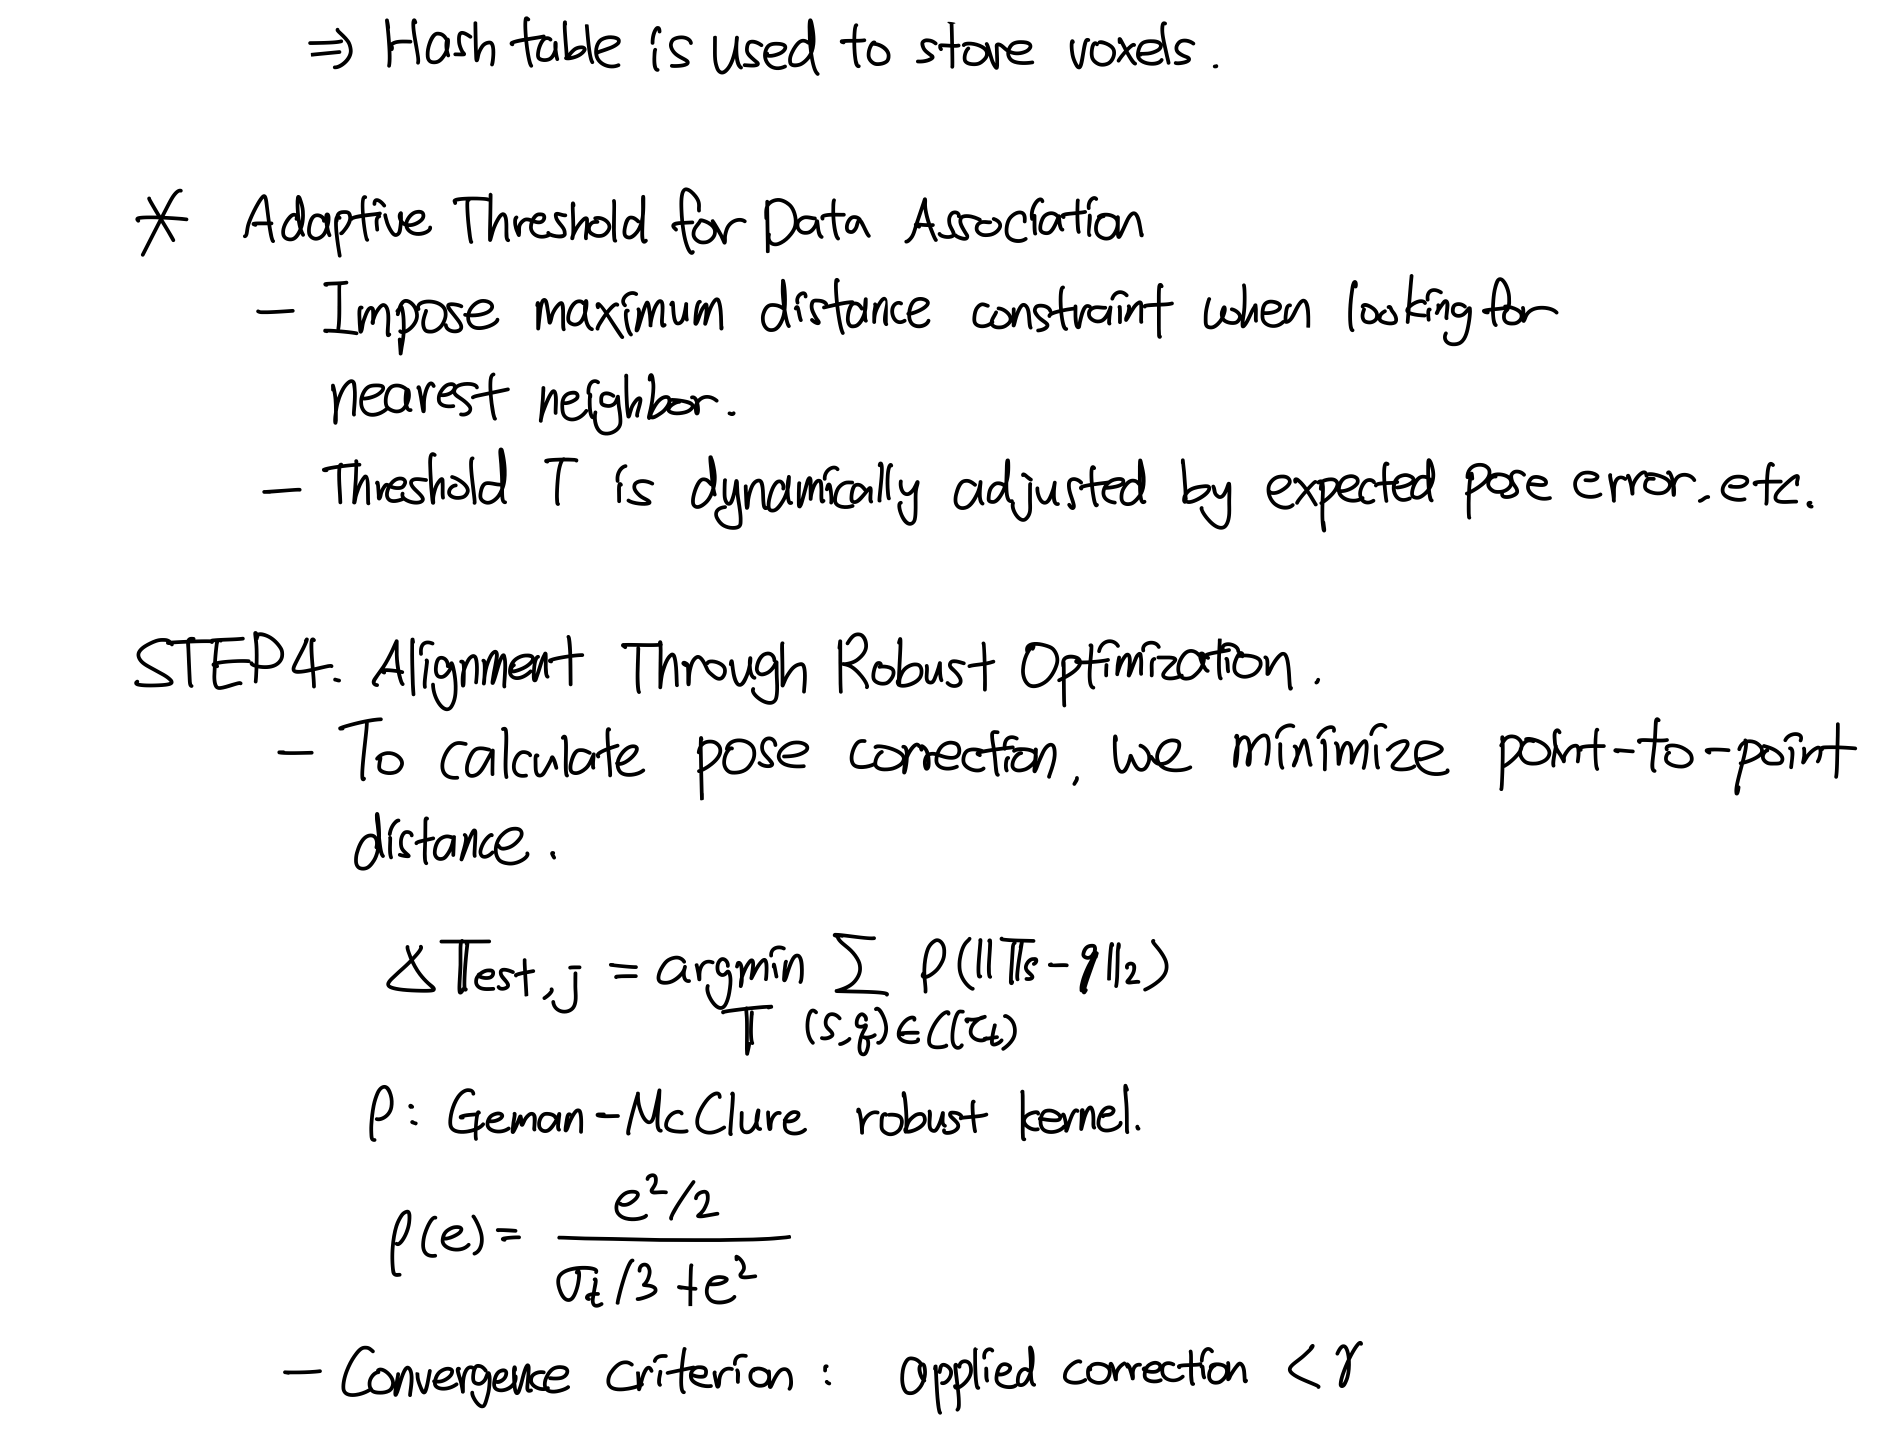 ⇒ Hash table is used to store voxels.
* Adaptive Threshold for Data Association
- Impose maximum distance constraint when looking for
nearest neighbor.
- Threshold T is dynamically adjusted by expected pose error, etc.
STEP 4. Alignment Through Robust Optimization.
- To calculate pose correction, we minimize point-to-point
distance.
Δ𝕋est,j = argmin ∑ ρ(||𝕋s - q||₂)
𝕋 (s,q)∈C(τₜ)
ρ: Geman-McClure robust kernel.
ρ(e) = e²/2
σₜ/3 + e²
- Convergence criterion : applied correction < γ